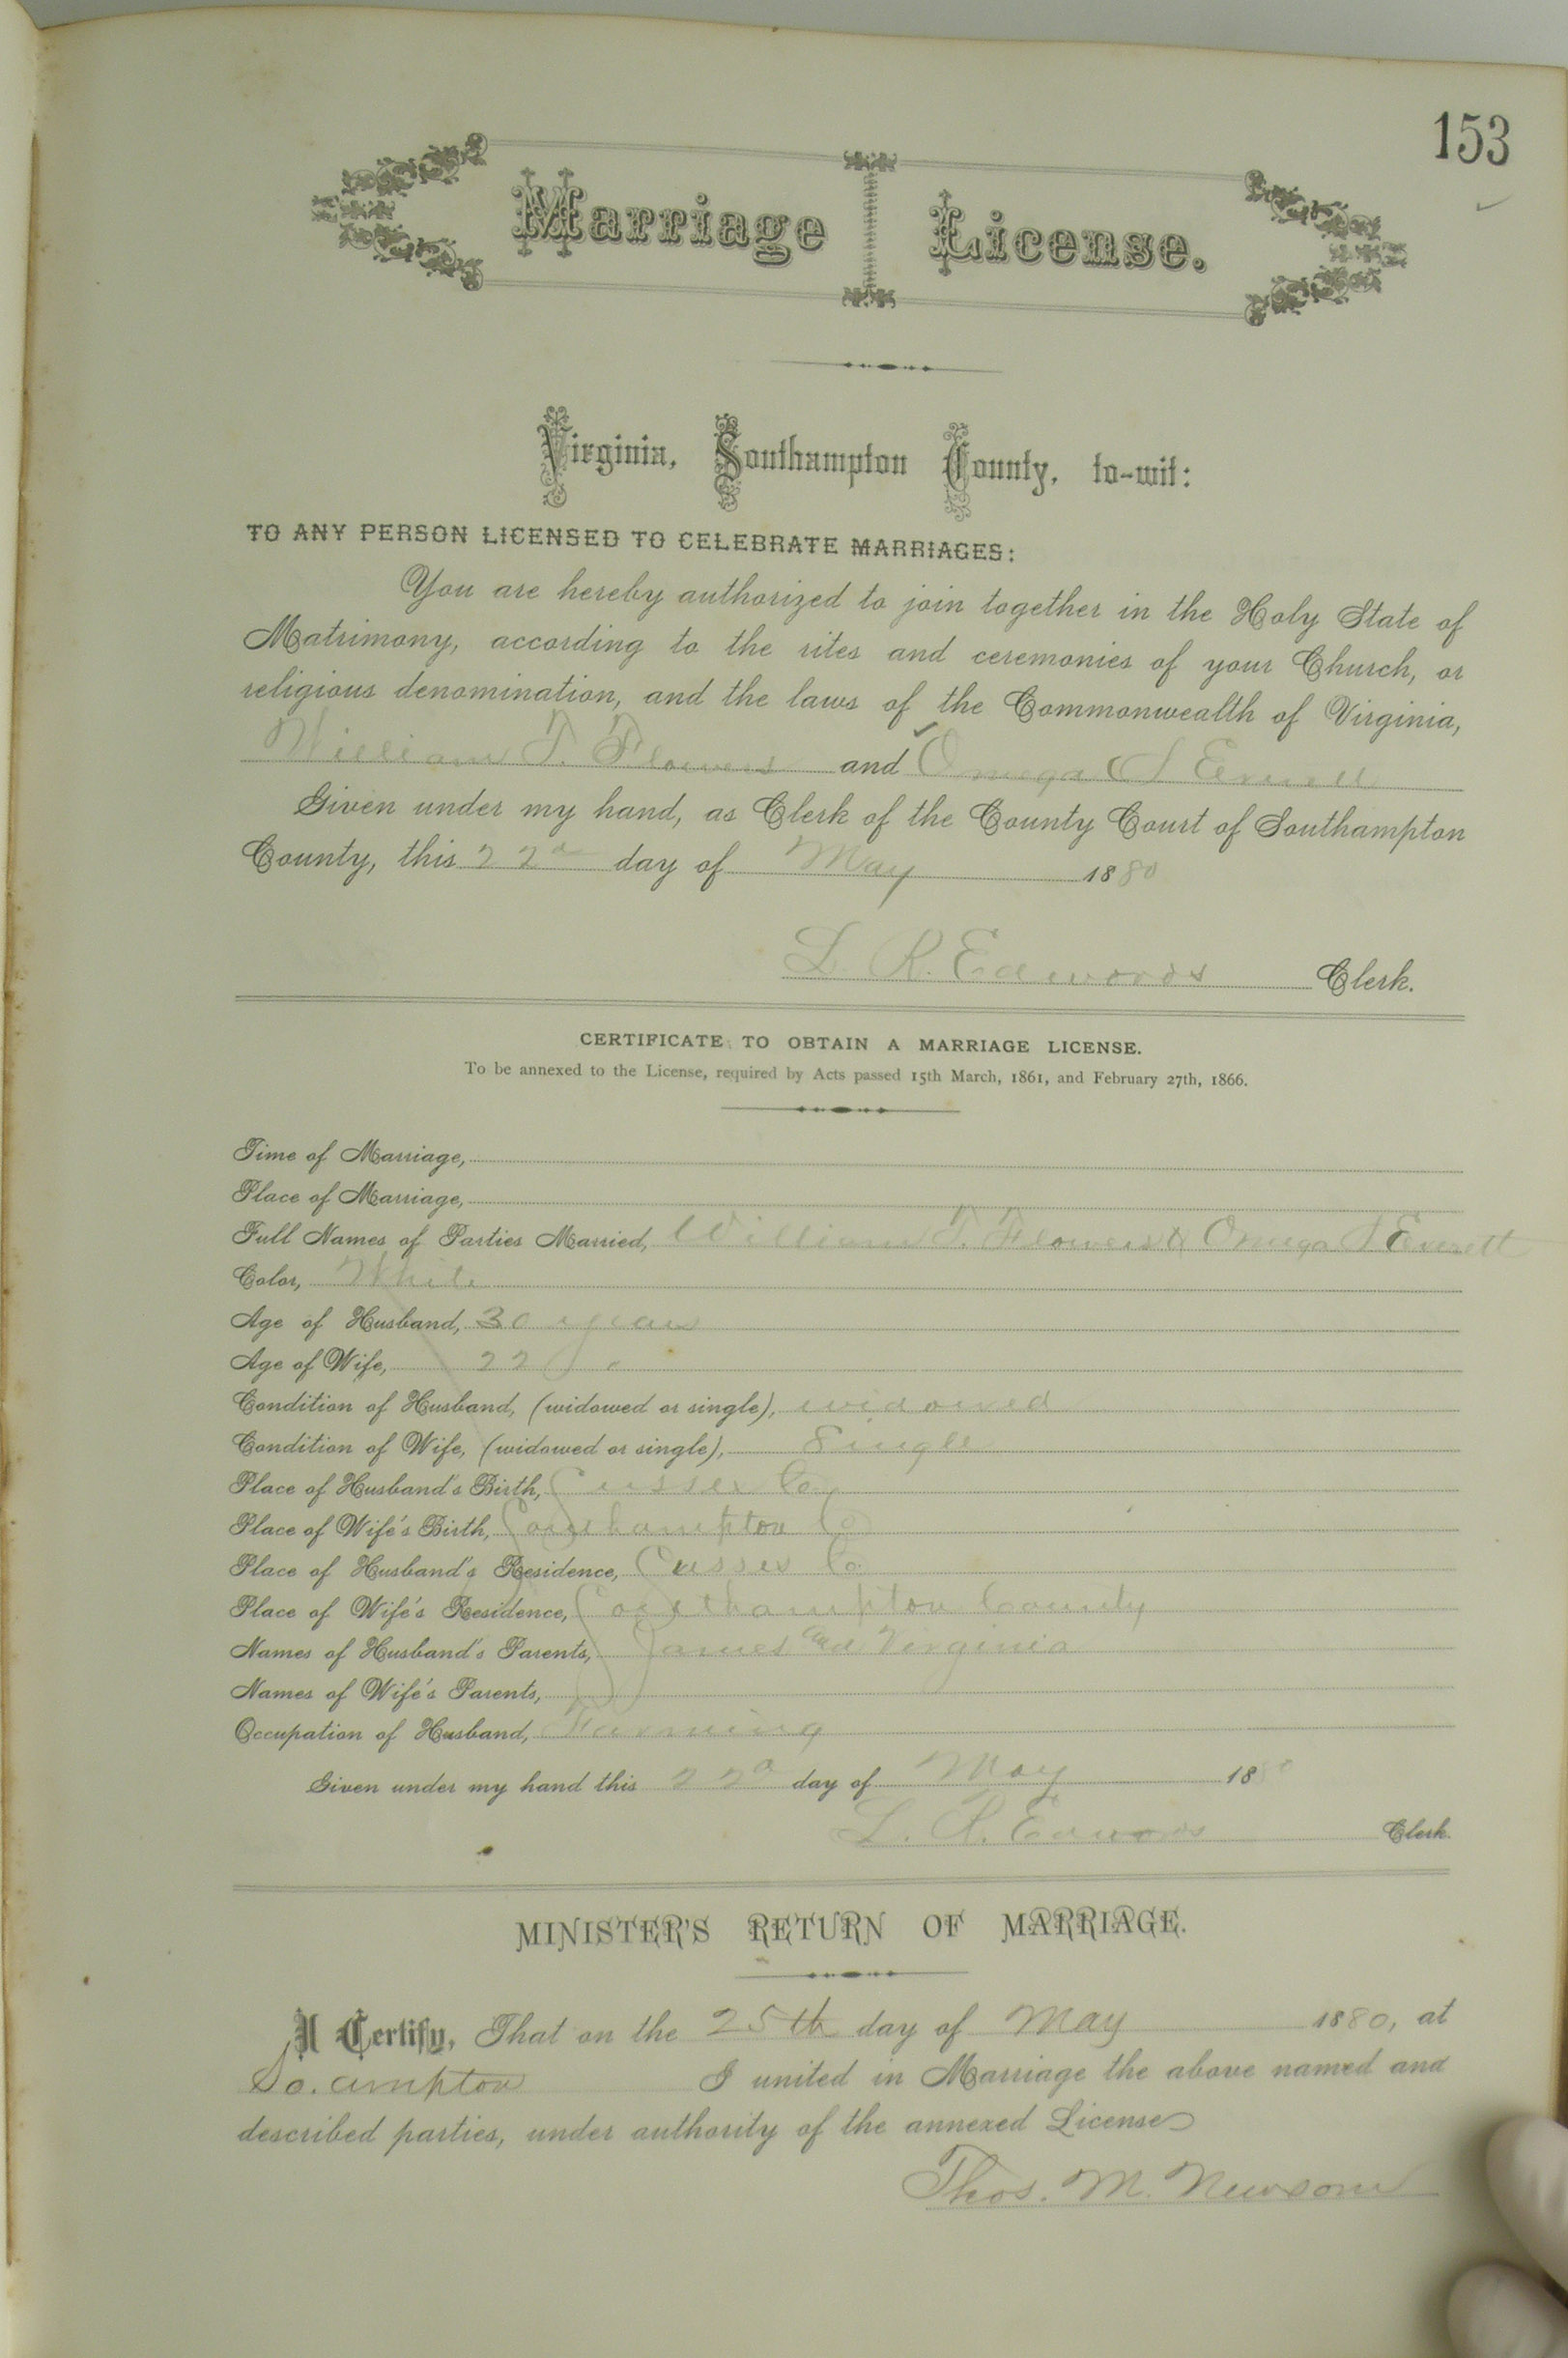 153
Marriage License.
Virginia, Southampton County, to-wit:
TO ANY PERSON LICENSED TO CELEBRATE MARRIAGES:
You are hereby authorized to join together in the Holy State of
Matrimony, according to the rites and ceremonies of your Church, or
religious denomination, and the laws of the Commonwealth of Virginia,
William T. Flowers and Omega S Everett
Given under my hand, as Clerk of the County Court of Southampton
County, this 22d day of May 1880
L. R. Edwards Clerk.
CERTIFICATE TO OBTAIN A MARRIAGE LICENSE.
To be annexed to the License, required by Acts passed 15th March, 1861, and February 27th, 1866.
Time of Marriage,
Place of Marriage,
Full Names of Parties Married, William T. Flowers & Omega S Everett
Color, White
Age of Husband, 30 years
Age of Wife, 22
Condition of Husband, (widowed or single), widowed
Condition of Wife, (widowed or single), Single
Place of Husband's Birth, Sussex Co
Place of Wife's Birth, Southampton Co
Place of Husband's Residence, Sussex Co
Place of Wife's Residence, Southampton County
Names of Husband's Parents, James and Virginia
Names of Wife's Parents,
Occupation of Husband, Farming
Given under my hand this 22d day of May 1880
L. R. Edwards Clerk.
MINISTER'S RETURN OF MARRIAGE.
I Certify, That on the 25th day of May 1880, at
So.ampton I united in Marriage the above named and
described parties, under authority of the annexed License
Thos. M. Newsom